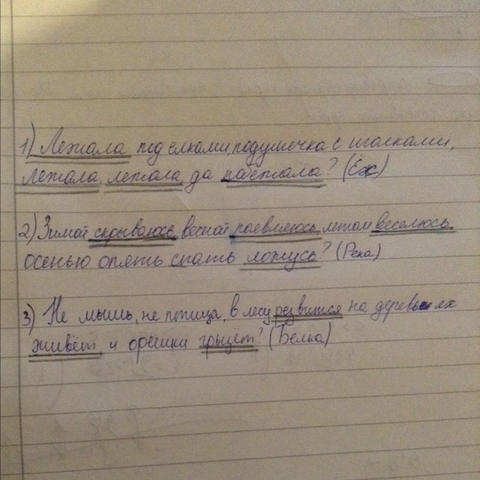 1) Лежала под елками, подушечка с иголками,
Лежала лежала да побежала? (Ёж)
2) Зимой скрываюсь, весной поевляюсь летом веселюсь
осенью опять спать ложусь? (Река)
3) Не мышь, не птица, в лесу резвится на деревьях
живёт и орешки грызёт? (Белка)